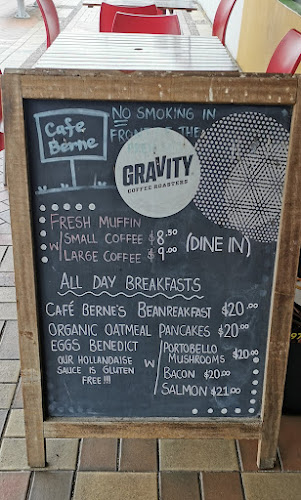 NO SMOKING IN
FRONT OF THE
Cafe
Berne
GRAVITY
COFFEE ROASTERS
FRESH MUFFIN
W/ SMALL COFFEE $8.50
LARGE COFFEE $9.00
(DINE IN)
ALL DAY BREAKFASTS
CAFÉ BERNE'S BEANREAKFAST $20.00
ORGANIC OATMEAL PANCAKES $20.00
EGGS BENEDICT
OUR HOLLANDAISE
SAUCE IS GLUTEN
FREE!!!
W/ PORTOBELLO
MUSHROOMS $20.00
BACON $20.00
SALMON $21.00